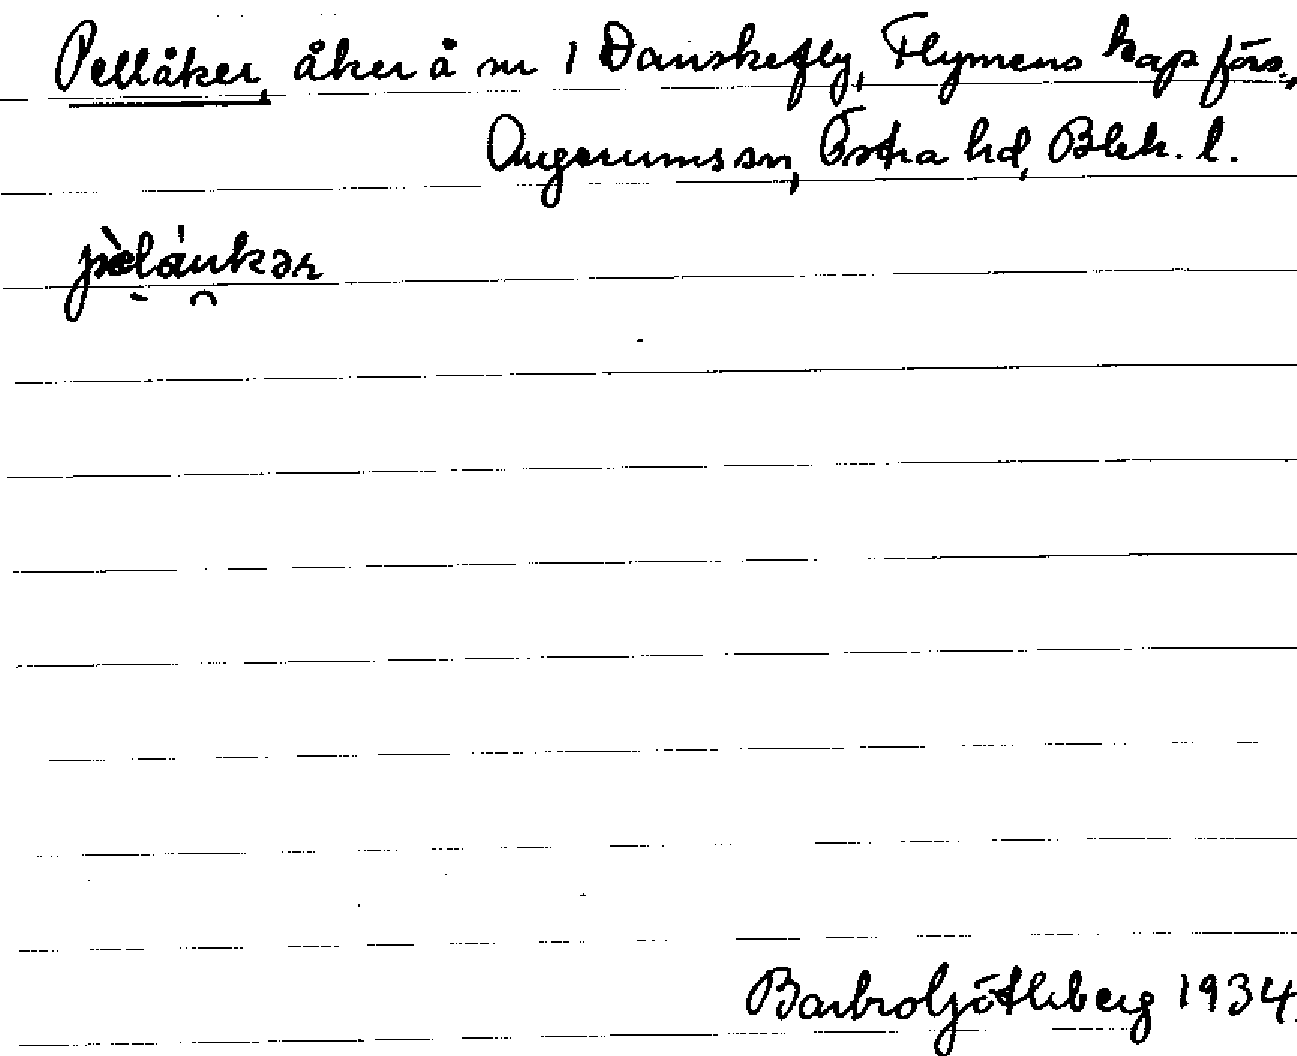 Pellåker, åker å nr 1 Danskefly, Flymens kapförs.,
Augerums sn, Östra hd, Blek. l.
pèláukər
Barbro Götleberg 1934.